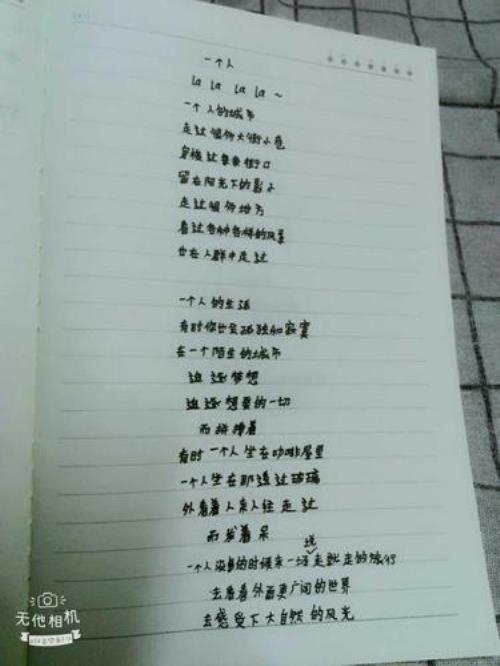 一个人
la la la la ~
一个人的城市
走过很多大街小巷
穿梭过每条街口
留在阳光下的影子
走过很多地方
看过各种各样的风景
也在人群中走过
一个人的生活
有时你也会孤独和寂寞
在一个陌生的城市
追逐梦想
追逐想要的一切
而拼搏着
有时一个人坐在咖啡屋里
一个人坐在那透过玻璃
外看着人来人往走过
而发着呆
一个人没事的时候来一场说走就走的旅行
去看看外面更广阔的世界
去感受下大自然的风光
无他相机